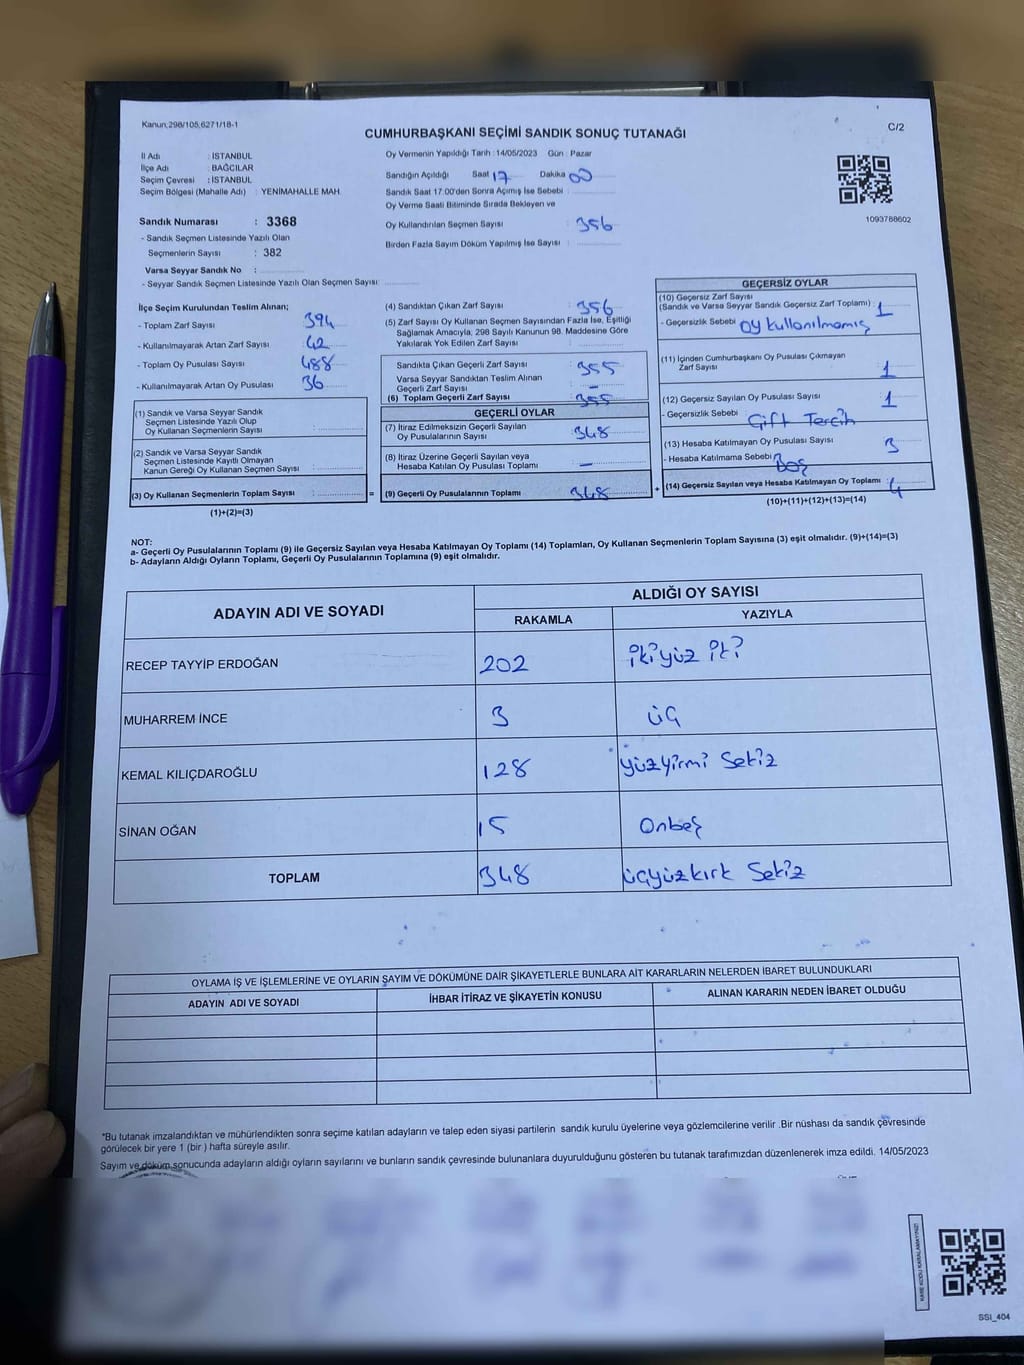 Kanun,298/105,6271/18-1
CUMHURBAŞKANI SEÇİMİ SANDIK SONUÇ TUTANAĞI
C/2
İl Adı : İSTANBUL
İlçe Adı : BAĞCILAR
Seçim Çevresi : İSTANBUL
Seçim Bölgesi (Mahalle Adı) : YENİMAHALLE MAH.
Sandık Numarası : 3368
- Sandık Seçmen Listesinde Yazılı Olan
Seçmenlerin Sayısı : 382
Varsa Seyyar Sandık No :
- Seyyar Sandık Seçmen Listesinde Yazılı Olan Seçmen Sayısı:
Oy Vermenin Yapıldığı Tarih : 14/05/2023 Gün : Pazar
Sandığın Açıldığı Saat 17 Dakika 00
Sandık Saat 17:00'den Sonra Açımış İse Sebebi :
Oy Verme Saati Bitiminde Sırada Bekleyen ve
Oy Kullandırılan Seçmen Sayısı : 356
Birden Fazla Sayım Döküm Yapılmış İse Sayısı :
1093788602
İlçe Seçim Kurulundan Teslim Alınan;
- Toplam Zarf Sayısı 394
- Kullanılmayarak Artan Zarf Sayısı 42
- Toplam Oy Pusulası Sayısı 488
- Kullanılmayarak Artan Oy Pusulası 36
(1) Sandık ve Varsa Seyyar Sandık
Seçmen Listesinde Yazılı Olup
Oy Kullanan Seçmenlerin Sayısı :
(2) Sandık ve Varsa Seyyar Sandık
Seçmen Listesinde Kayıtlı Olmayan
Kanun Gereği Oy Kullanan Seçmen Sayısı :
(3) Oy Kullanan Seçmenlerin Toplam Sayısı : =
(1)+(2)=(3)
(4) Sandıktan Çıkan Zarf Sayısı : 356
(5) Zarf Sayısı Oy Kullanan Seçmen Sayısından Fazla İse, Eşitliği
Sağlamak Amacıyla, 298 Sayılı Kanunun 98. Maddesine Göre
Yakılarak Yok Edilen Zarf Sayısı :
Sandıkta Çıkan Geçerli Zarf Sayısı : 355
Varsa Seyyar Sandıktan Teslim Alınan
Geçerli Zarf Sayısı : –
(6) Toplam Geçerli Zarf Sayısı : 355
GEÇERLİ OYLAR
(7) İtiraz Edilmeksizin Geçerli Sayılan
Oy Pusulalarının Sayısı : 348
(8) İtiraz Üzerine Geçerli Sayılan veya
Hesaba Katılan Oy Pusulası Toplamı : –
(9) Geçerli Oy Pusulalarının Toplamı : 348 +
GEÇERSİZ OYLAR
(10) Geçersiz Zarf Sayısı
(Sandık ve Varsa Seyyar Sandık Geçersiz Zarf Toplamı) : 1
- Geçersizlik Sebebi : Oy kullanılmamış
(11) İçinden Cumhurbaşkanı Oy Pusulası Çıkmayan
Zarf Sayısı : 1
(12) Geçersiz Sayılan Oy Pusulası Sayısı : 1
- Geçersizlik Sebebi : Çift Tercih
(13) Hesaba Katılmayan Oy Pusulası Sayısı : 3
- Hesaba Katılmama Sebebi : Boş
(14) Geçersiz Sayılan veya Hesaba Katılmayan Oy Toplamı : 4
(10)+(11)+(12)+(13)=(14)
NOT:
a- Geçerli Oy Pusulalarının Toplamı (9) ile Geçersiz Sayılan veya Hesaba Katılmayan Oy Toplamı (14) Toplamları, Oy Kullanan Seçmenlerin Toplam Sayısına (3) eşit olmalıdır. (9)+(14)=(3)
b- Adayların Aldığı Oyların Toplamı, Geçerli Oy Pusulalarının Toplamına (9) eşit olmalıdır.
ADAYIN ADI VE SOYADI
ALDIĞI OY SAYISI
RAKAMLA YAZIYLA
RECEP TAYYİP ERDOĞAN 202 ikiyüz iki
MUHARREM İNCE 3 üç
KEMAL KILIÇDAROĞLU 128 yüzyirmi sekiz
SİNAN OĞAN 15 Onbeş
TOPLAM 348 üçyüzkırk sekiz
OYLAMA İŞ VE İŞLEMLERİNE VE OYLARIN SAYIM VE DÖKÜMÜNE DAİR ŞİKAYETLERLE BUNLARA AİT KARARLARIN NELERDEN İBARET BULUNDUKLARI
ADAYIN ADI VE SOYADI İHBAR İTİRAZ VE ŞİKAYETİN KONUSU ALINAN KARARIN NEDEN İBARET OLDUĞU
*Bu tutanak imzalandıktan ve mühürlendikten sonra seçime katılan adayların ve talep eden siyasi partilerin sandık kurulu üyelerine veya gözlemcilerine verilir .Bir nüshası da sandık çevresinde
görülecek bir yere 1 (bir ) hafta süreyle asılır.
Sayım ve döküm sonucunda adayların aldığı oyların sayılarını ve bunların sandık çevresinde bulunanlara duyurulduğunu gösteren bu tutanak tarafımızdan düzenlenerek imza edildi. 14/05/2023
KARE KODU KARALAMAYINIZ!
SSI_404